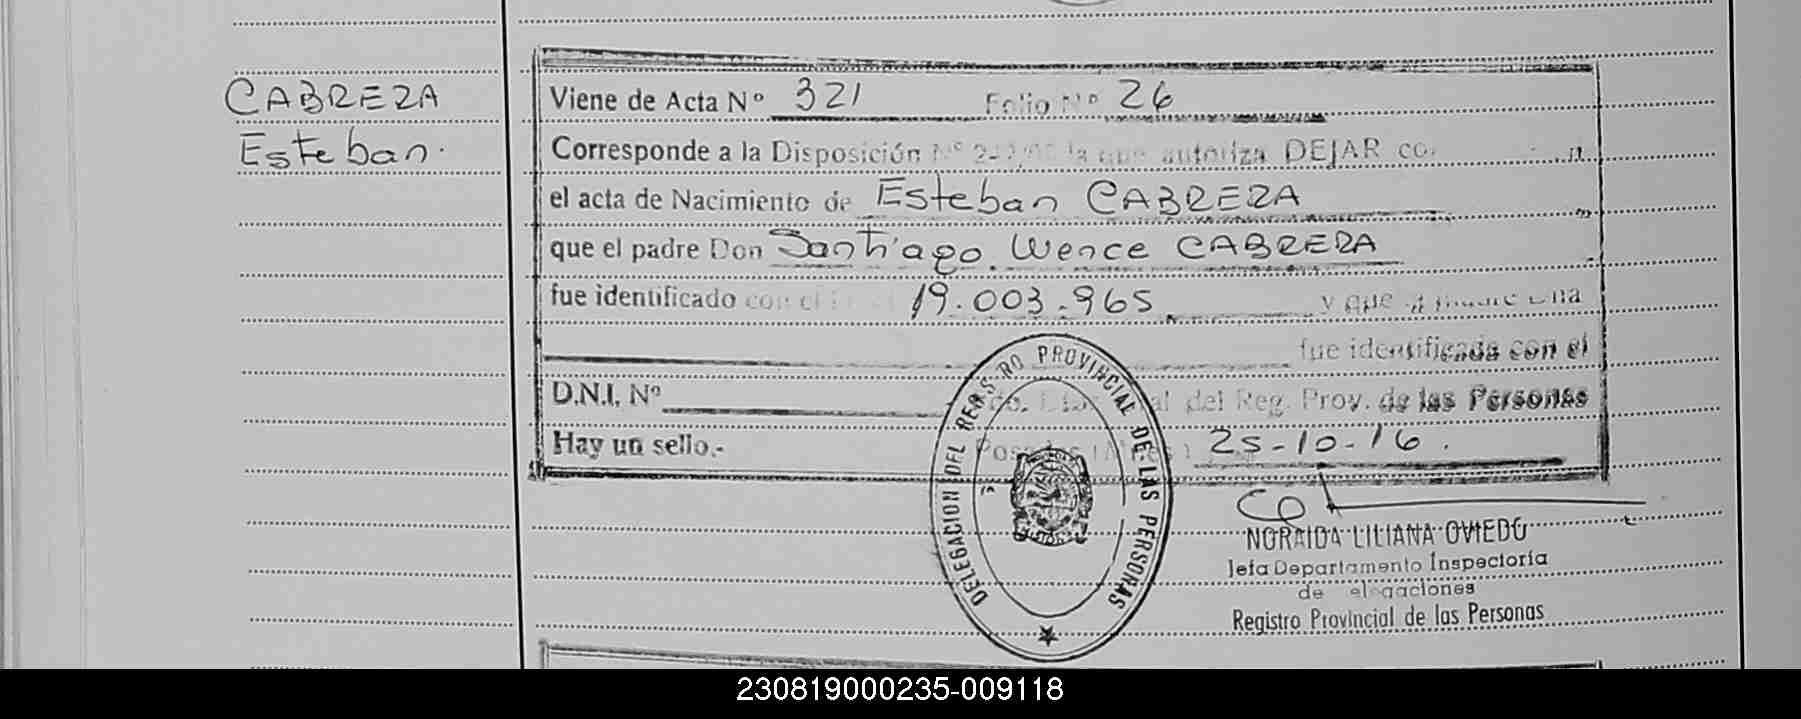 CABRERA
Esteban.
Viene de Acta Nº 321 Folio Nº 26
Corresponde a la Disposición Nº la que autoriza DEJAR
el acta de Nacimiento de Esteban CABRERA
que el padre Don Santiago Wence CABRERA
fue identificado con el 19.003.965 y que la madre Dña
fue identificada con el
D.N.I. Nº del Reg. Prov. de las Personas
Hay un sello.- Posadas 25-10-16.
DELEGACION DEL REGISTRO PROVINCIAL DE LAS PERSONAS
NORAIDA LILIANA OVIEDO
Jefa Departamento Inspectoría
de elegaciones
Registro Provincial de las Personas
230819000235-009118